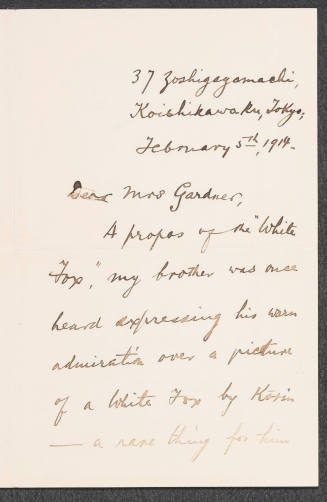 37 Zoshigayamachi,
Koishikawaku, Tokyo;
February 5th, 1914.
Dear Mrs Gardner,
A propos of the "White
Fox," my brother was once
heard expressing his warm
admiration over a picture
of a White Fox by Kōrin
— a rare thing for him